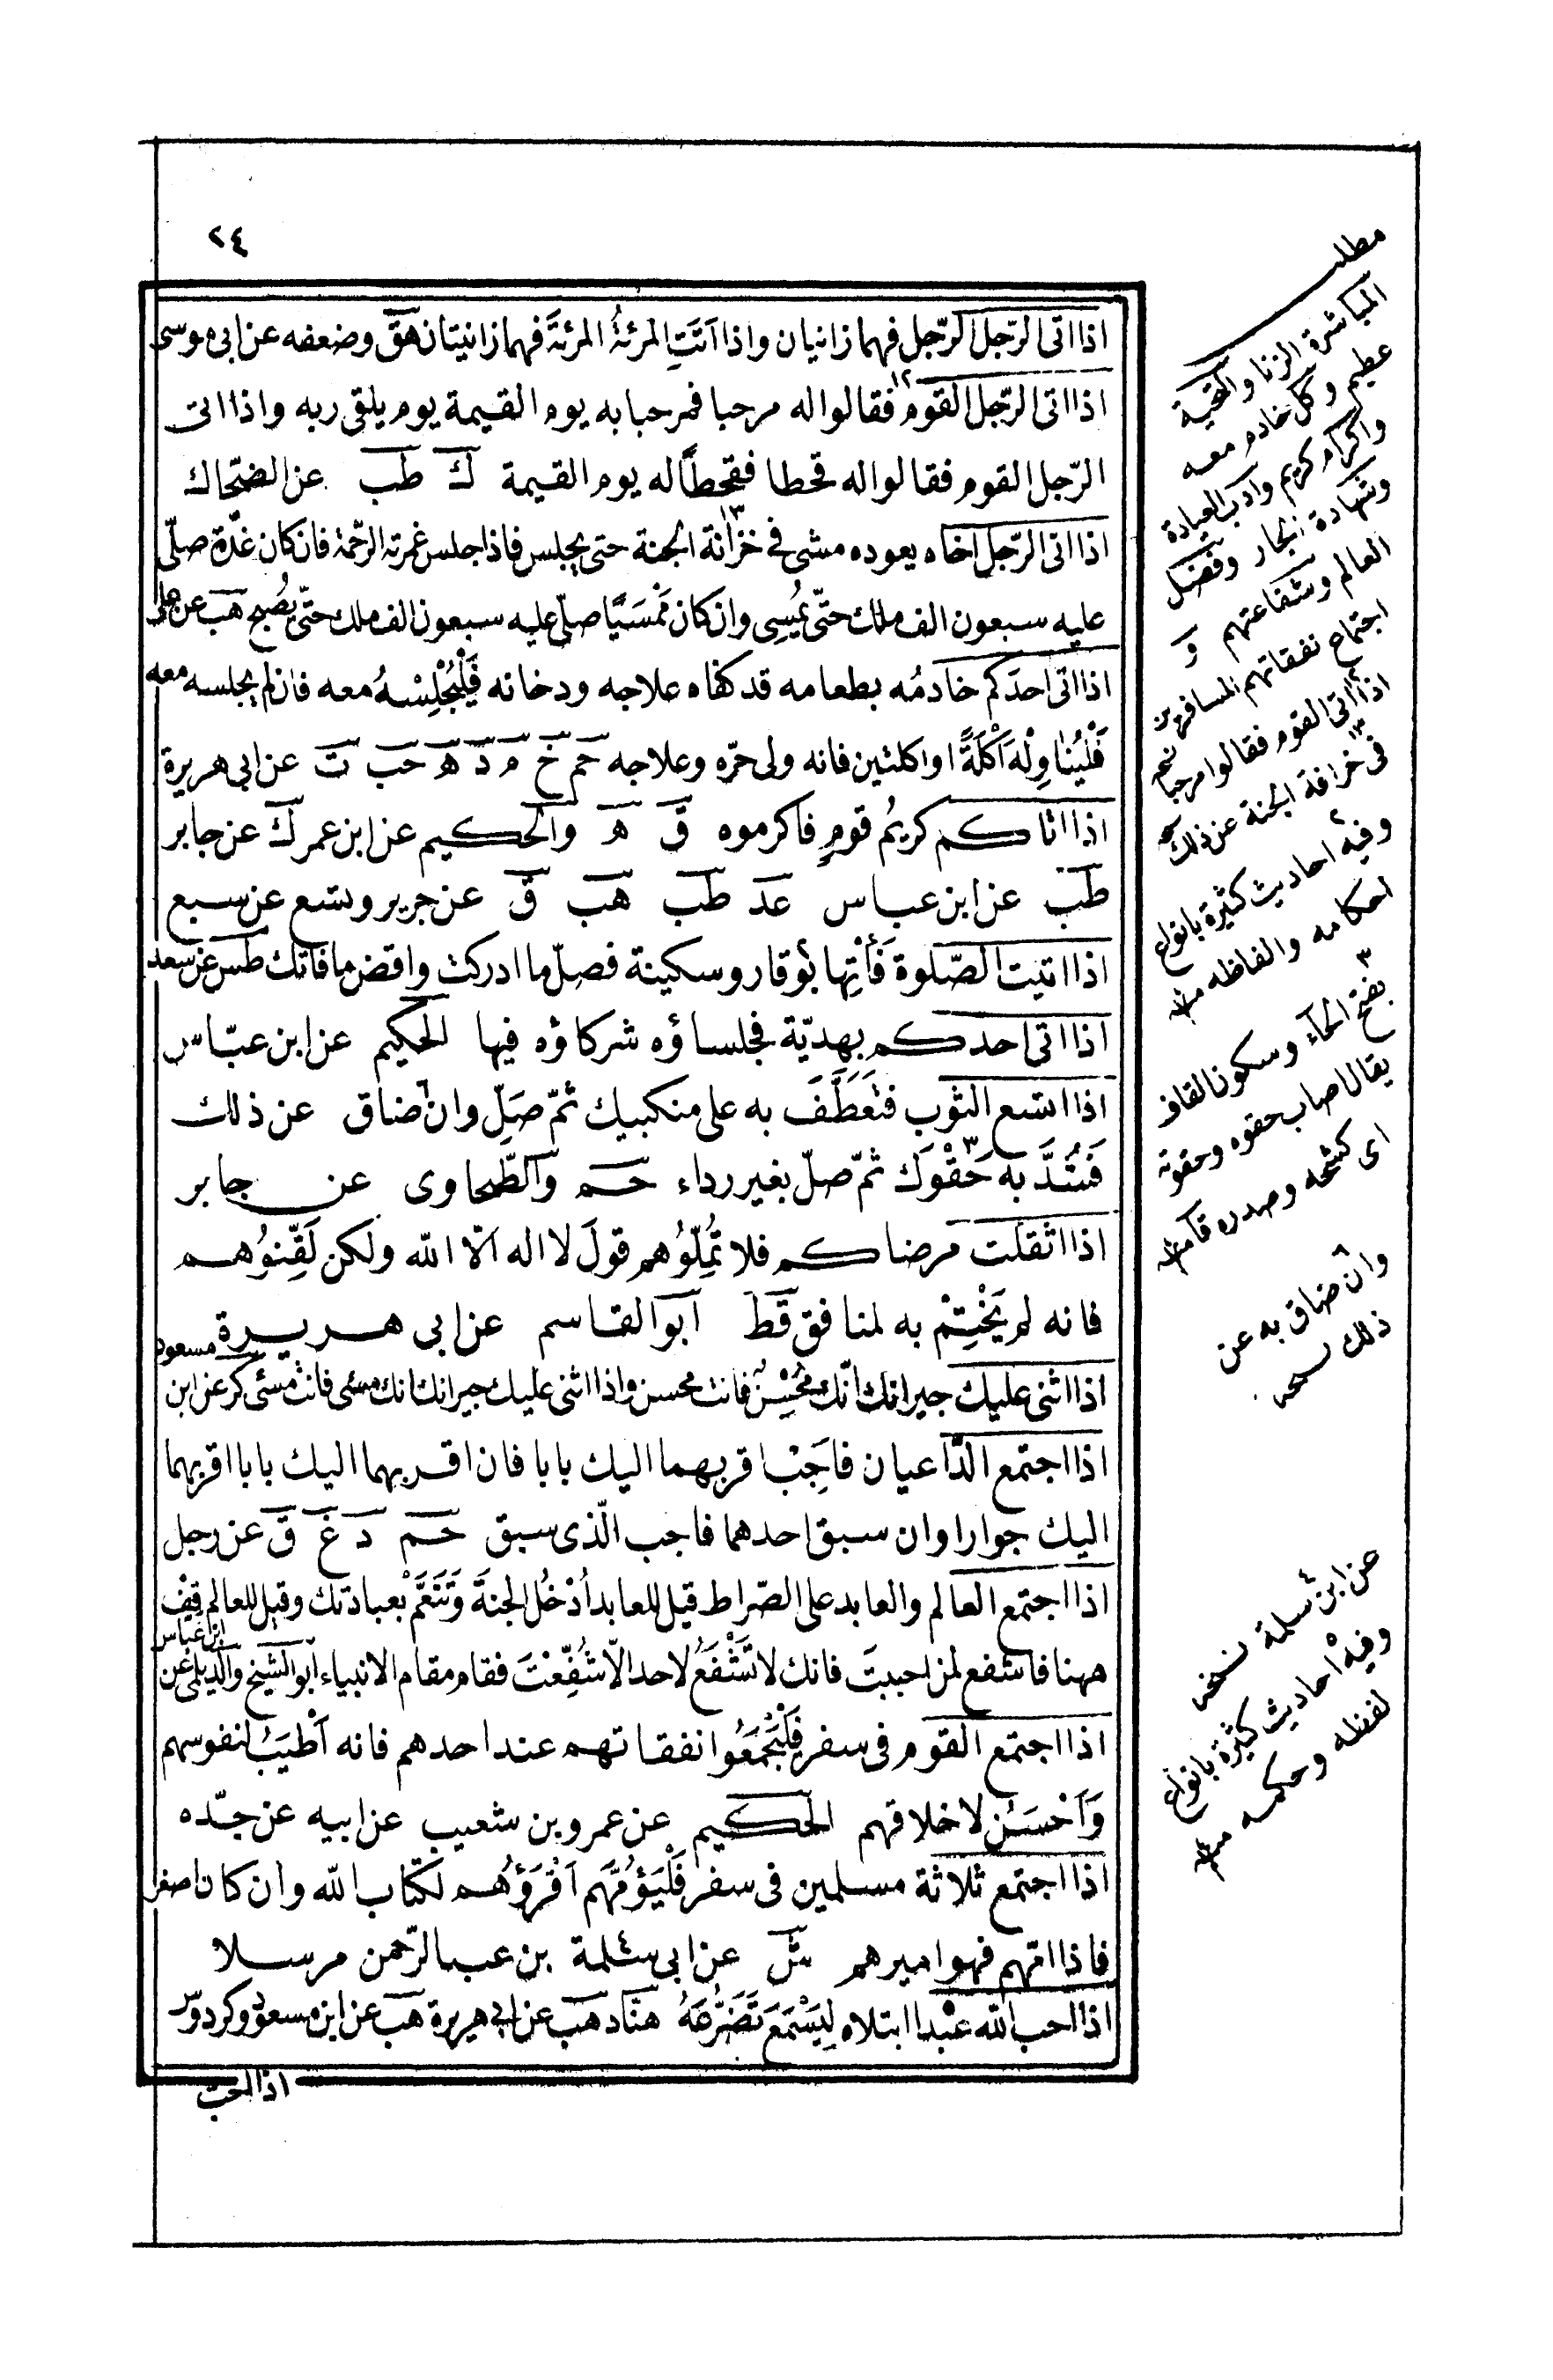 ٢٤
اذا اتى الرّجل الرّجل فهما زانيان واذا اَتَتِ المرئةُ المرئةَ فهما زانيتان هق وضعفه عن ابى موسى
اذا اتى الرّجل القوم١٢ فقالوا له مرحبا فمرحبا به يوم القيمة يوم يلقى ربه واذا اتى
الرّجل القوم فقالوا له قحطا فقحطًا له يوم القيمة ك طب عن الضّحاك
اذا اتى الرّجل اخاه يعوده مشى فى خزانة١٣ الجنة حتى يجلس فاذا جلس غمرته الرّحمة فان كان غدّة صلّى
عليه سبعون الف ملك حتّى يُمْسِى وان كان مُمْسَيًا صلّى عليه سبعون الف ملك حتّى يُصْبح هب عن على
اذا اتى احدَكم خادمُه بطعامه قد كفاه علاجه ودخانه فَلْيُجْلِسْهُ معه فان لم يجلسه معه
فَلْيُنٰاوِلْهُ اَكْلَةً او اكلتين فانه ولى حرّه وعلاجه حم خ م د ه حب ت عن ابى هريرة
اذا اتاكم كريمُ قومٍ فاكرموه ق ه والحكيم عن ابن عمر ك عن جابر
طب عن ابن عباس عد طب هب ق عن جرير وتسع عن سبع
اذا اتيت الصّلوة فَأْتِها بوقار وسكينة فصلّ ما ادركت واقض ما فاتك طس عن سعد
اذا اتى احدكم بهديّة فجلساؤه شركاؤه فيها الحكيم عن ابن عبّاس
اذا اتسع الثوب فَتَعَطَّفَ به على منكبيك ثمّ صَلِّ وان ضاق عن ذلك
فَشُدَّ به حَقْوَك٣ ثمّ صلّ بغير رداء حم والطّحاوى عن جابر
اذا اثقلت مرضاكم فلا تُمِلّوُهم قولَ لا اله الّا الله ولكن لَقِّنوُهم
فانه لم يَخْتِمْ به لمنافق قطّ ابو القاسم عن ابى هريرة
اذا اثنى عليك جيرانك انّك مُحْسِنٌ فانت محسن واذا اثنى عليك جيرانك انك مسئى فانت مسئى كر عن ابن مسعود
اذا اجتمع الدّاعيان فاَجِبْ اقربهما اليك بابا فان اقربهما اليك بابا اقربهما
اليك جوارا وان سبق احدهما فاجب الّذى سبق حم د غ ق عن رجل
اذا اجتمع العالم والعابد على الصّراط قيل للعابد اُدْخُلِ الجنةَ وَتَنَعَّمْ بعبادتك وقيل للعالم قِفْ
ههنا فاشفع لمن احببتَ فانك لا تَشْفَعُ لاحد الّا شُفِّعْتَ فقام مقام الانبياء ابو الشيخ والدّيلمى عن ابن عباس
اذا اجتمع القوم فى سفر فَلْيَجْمَعُوا نفقاتهم عند احدهم فانه اَطْيَبُ لنفوسهم
وَاَحْسَنُ لاخلاقهم الحكيم عن عمرو بن شعيب عن ابيه عن جدّه
اذا اجتمع ثلاثة مسلمين فى سفر فَلْيَؤُمَّهم اَقْرَؤُهم لكتاب الله وان كان اصغر
فاذا امّهم فهو اميرهم ش عن ابى سلمة بن عبد الرّحمن مرسلا
اذا احب الله عبْدا ابتلاه لِيَسْمَعَ تَضَرُّعَهُ هنّاد هب عن ابى هريرة هب عن ابن مسعود وكردوس
اذا احبّ
مطلب
المباشرة الزنا والتحية
عظيم وكل خادم معه
واكرام كريم وادب العيادة
وشهادة الجار وفضل
العالم وشفاعتهم و
اجتماع نفقاتهم المسافرين
اذا اتى القوم فقالوا مرحبا نسخه
فى خرافة الجنة عن ذلك
وفيه احاديث كثيرة بانواع
احكامه والفاظه منه
٣ بفتح الحاء وسكون القاف
يقال اصاب حقوه وحقوته
اى كشحه وصدره منه
وان ضاق به عن
ذلك نسخه
عن ابن سلمة نسخه
وفيه احاديث كثيرة بانواع
لفظه وحكمه منه